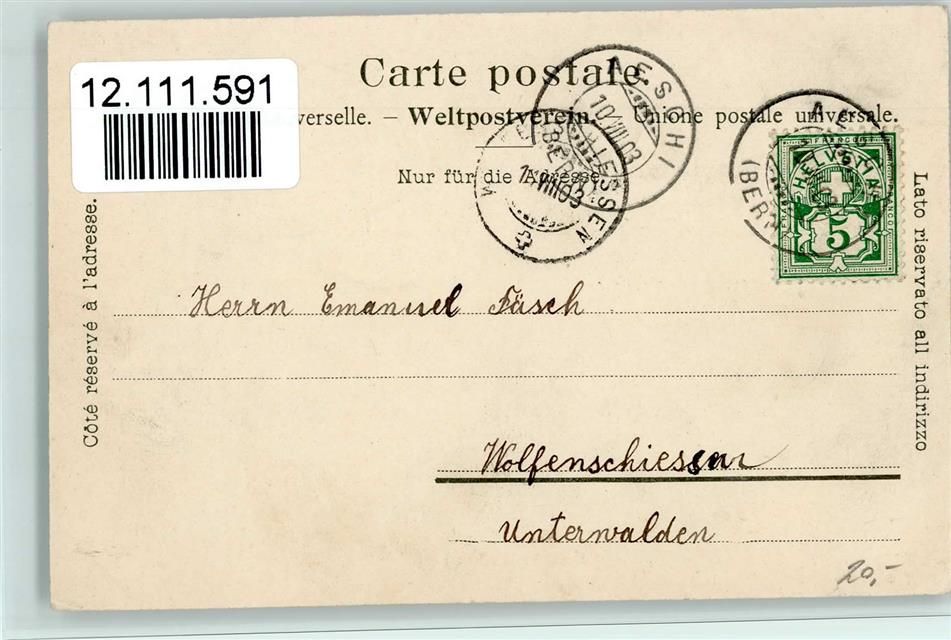 12.111.591
Carte postale.
verselle. – Weltpostverein. – Unione postale universale.
Nur für die Adresse.
AESCHI
10 VIII 03
SSEN
VIII 03
(BERN
HELVETIA
FRANCO
5
Côté réservé à l'adresse.
Lato riservato all indirizzo
Herrn Emanuel Fäsch
Wolfenschiessen
Unterwalden
20,-